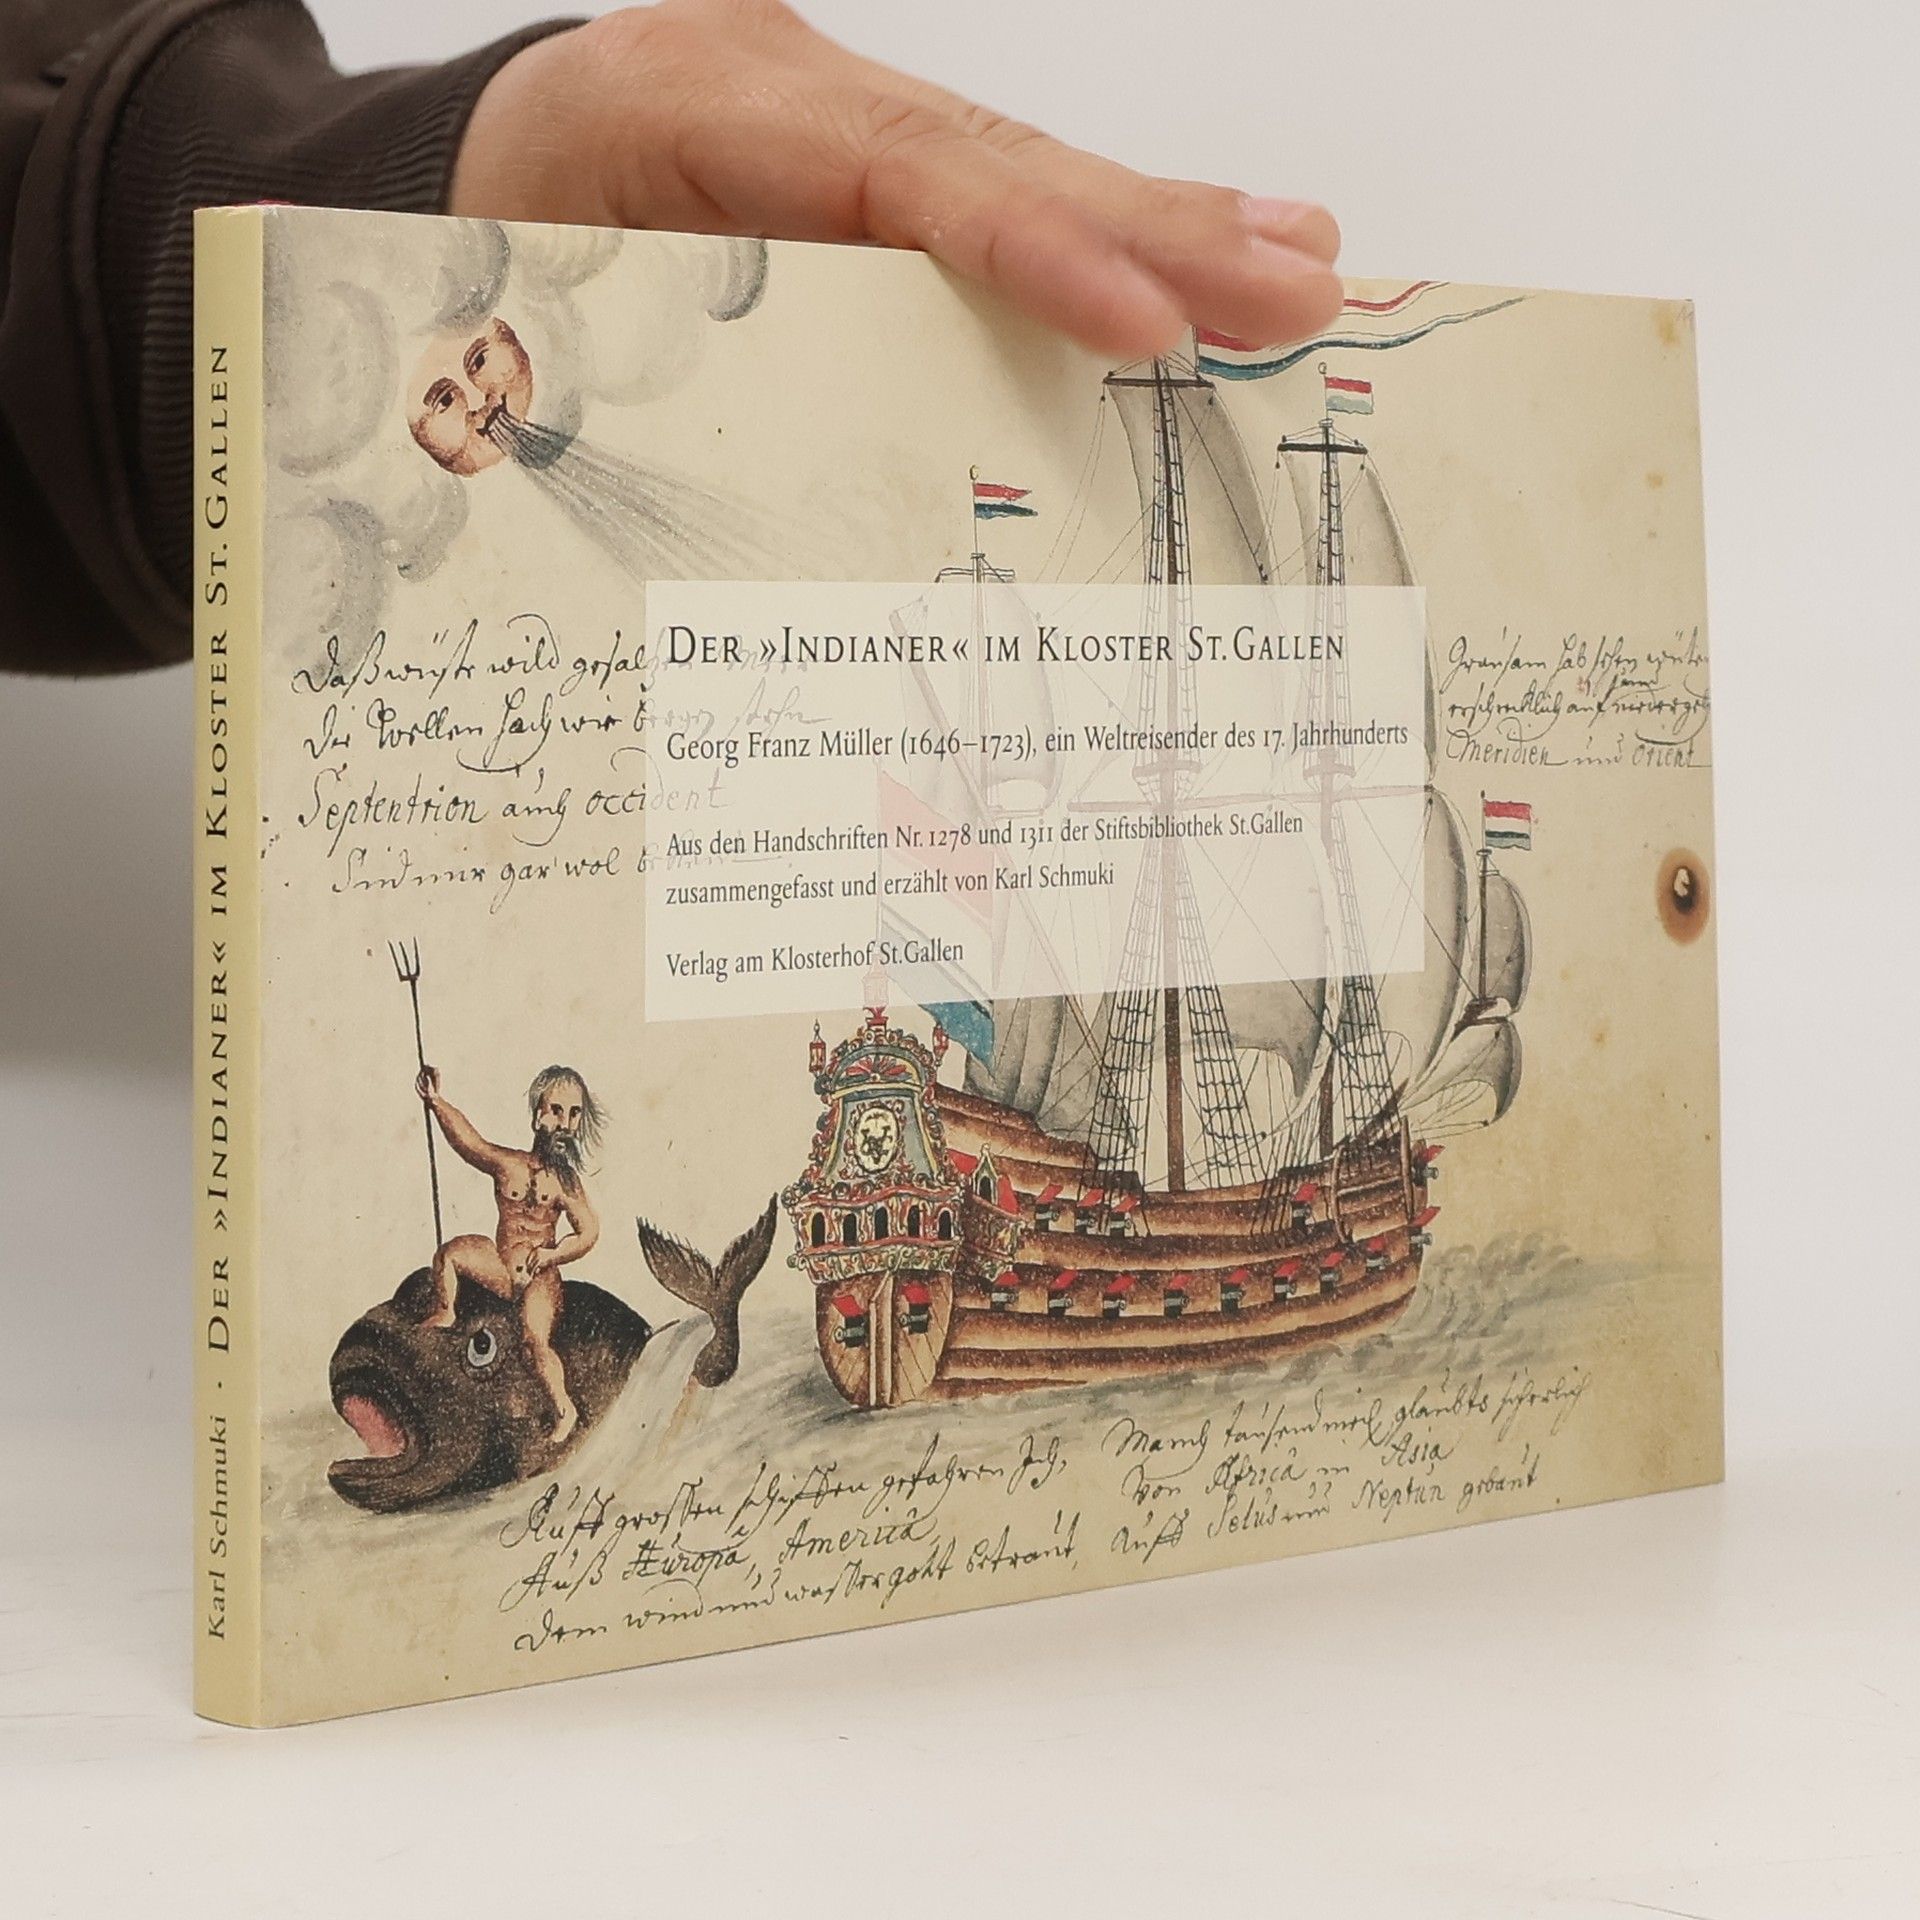 Karl Schmuki · DER »INDIANER« IM KLOSTER ST. GALLEN
DER »INDIANER« IM KLOSTER ST. GALLEN
Georg Franz Müller (1646–1723), ein Weltreisender des 17. Jahrhunderts
Aus den Handschriften Nr. 1278 und 1311 der Stiftsbibliothek St. Gallen
zusammengefasst und erzählt von Karl Schmuki
Verlag am Klosterhof St. Gallen
Daß wüste wild gesal
Die Wellen hoch wie bergen stehn
Septentrion auch occident
Sind mir gar wol
Grausam hab sehen
erschrecklich auf
Meridien und Orient
Auff grossen schiffen gefahren Ich,
Auß Europa, America,
Dem wind und wasser gott betraut,
Manch tausend meil glaubts sicherlich
Von Africa in Asia
Auff und Neptun gebaut